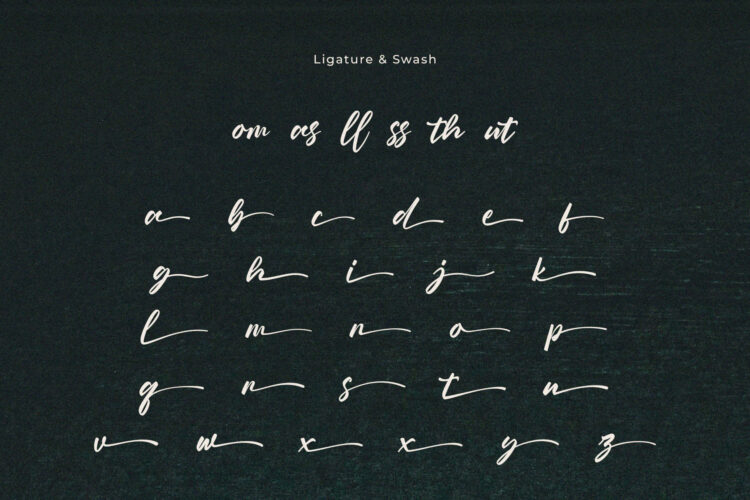 Ligature & Swash
om as ll ss th ut
a b c d e f
g h i j k
l m n o p
q r s t u
v w x x y z